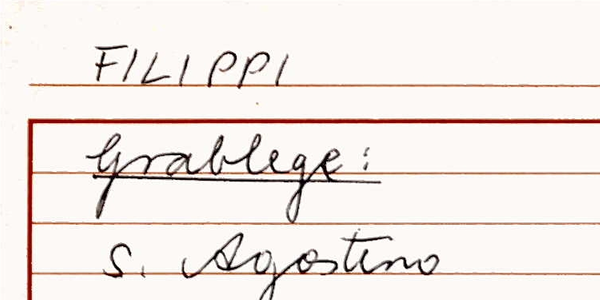 FILIPPI
Grablege:
S. Agostino